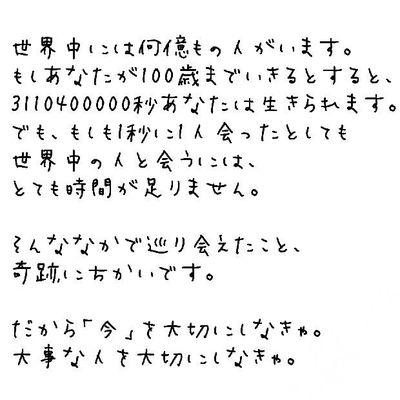 世界中には何億もの人がいます。
もしあなたが100歳までいきるとすると、
3110400000秒あなたは生きられます。
でも、もしも1秒に1人会ったとしても
世界中の人と会うには、
とても時間が足りません。
そんななかで巡り会えたこと、
奇跡にちかいです。
だから「今」を大切にしなきゃ。
大事な人を大切にしなきゃ。